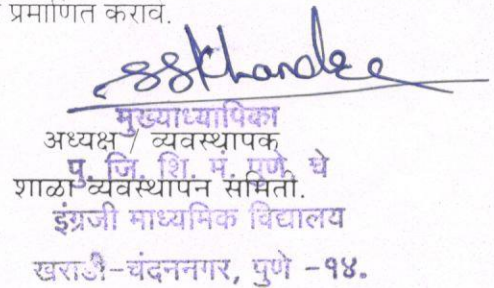 प्रमाणित करावे.
SSKhandke
मुख्याध्यापिका
अध्यक्ष / व्यवस्थापक
पु. जि. शि. मं. पुणे. चे
शाळा व्यवस्थापन समिती.
इंग्रजी माध्यमिक विद्यालय
खराडी-चंदननगर, पुणे -१४.